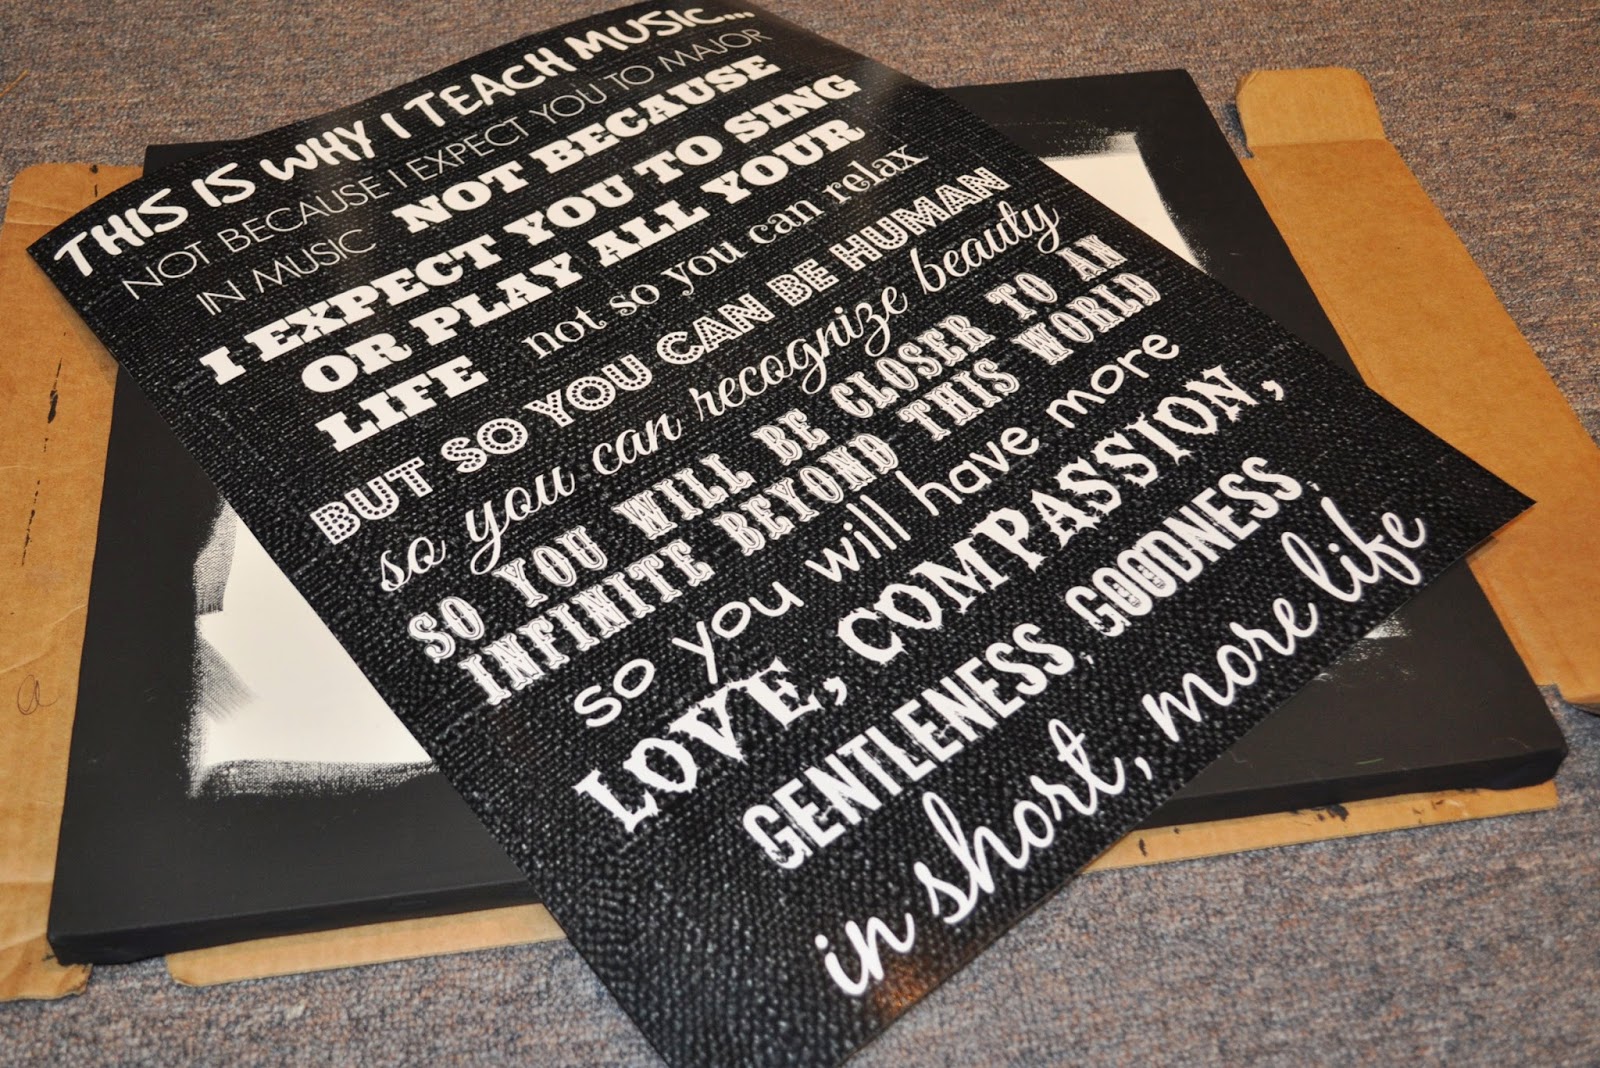 THIS IS WHY I TEACH MUSIC...
NOT BECAUSE I EXPECT YOU TO MAJOR
IN MUSIC NOT BECAUSE
I EXPECT YOU TO SING
OR PLAY ALL YOUR
LIFE not so you can relax
BUT SO YOU CAN BE HUMAN
so you can recognize beauty
SO YOU WILL BE CLOSER TO AN
INFINITE BEYOND THIS WORLD
so you will have more
LOVE, COMPASSION,
GENTLENESS, GOODNESS,
in short, more life